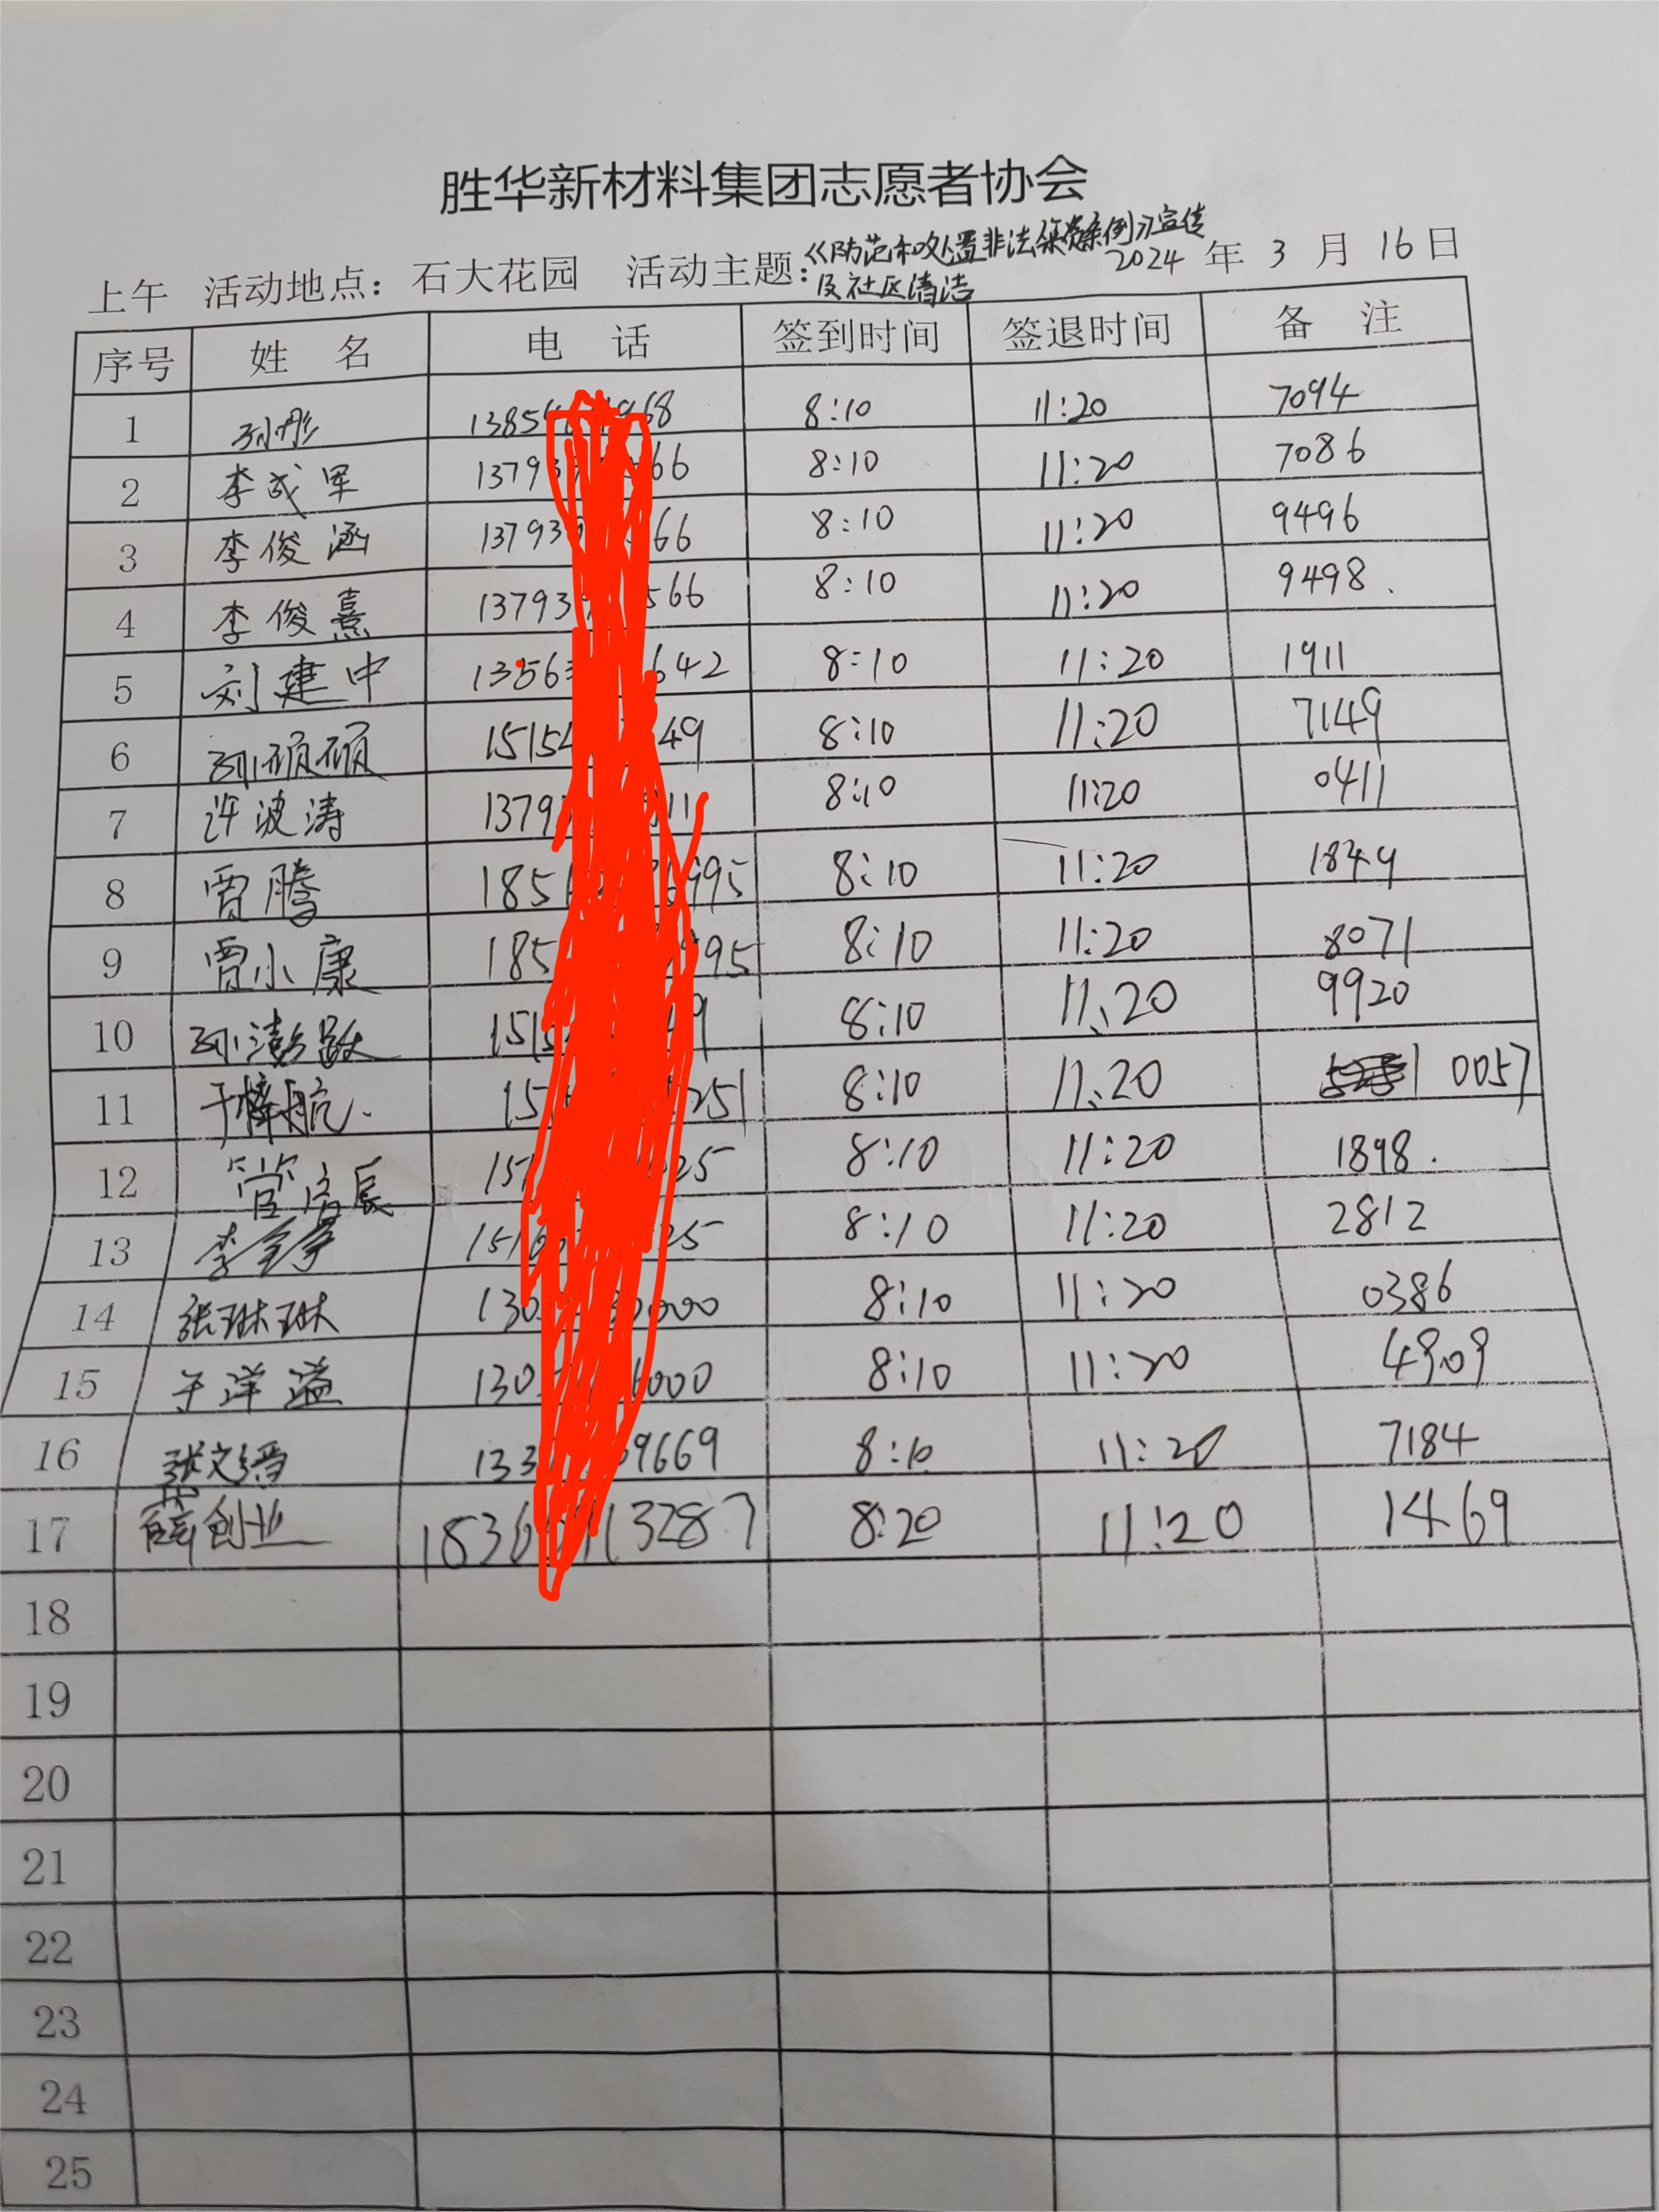 胜华新材料集团志愿者协会
上午 活动地点：石大花园 活动主题：《防范和处置非法集资条例》宣传及社区清洁 2024 年 3 月 16 日
序号 姓 名 电 话 签到时间 签退时间 备 注
1 孙彤 1385 68 8:10 11:20 7094
2 李成军 13793 66 8:10 11:20 7086
3 李俊涵 13793 66 8:10 11:20 9496
4 李俊熹 13793 566 8:10 11:20 9498.
5 刘建中 13563 642 8:10 11:20 1911
6 孙硕硕 1515 49 8:10 11:20 7149
7 许波涛 1379 11 8:10 11:20 0411
8 贾腾 185 995 8:10 11:20 1849
9 贾小康 185 995 8:10 11:20 8071
10 孙澎跃 151 9 8:10 11:20 9920
11 于梓航. 15 251 8:10 11:20 0057
12 管 辰 15 25 8:10 11:20 1898.
13 李 1516 25 8:10 11:20 2812
14 张琳琳 130 000 8:10 11:20 0386
15 于洋溢 130 6000 8:10 11:20 4909
16 张文 133 9669 8:10 11:20 7184
17 薛创业 1836 13287 8:20 11:20 1469
18
19
20
21
22
23
24
25